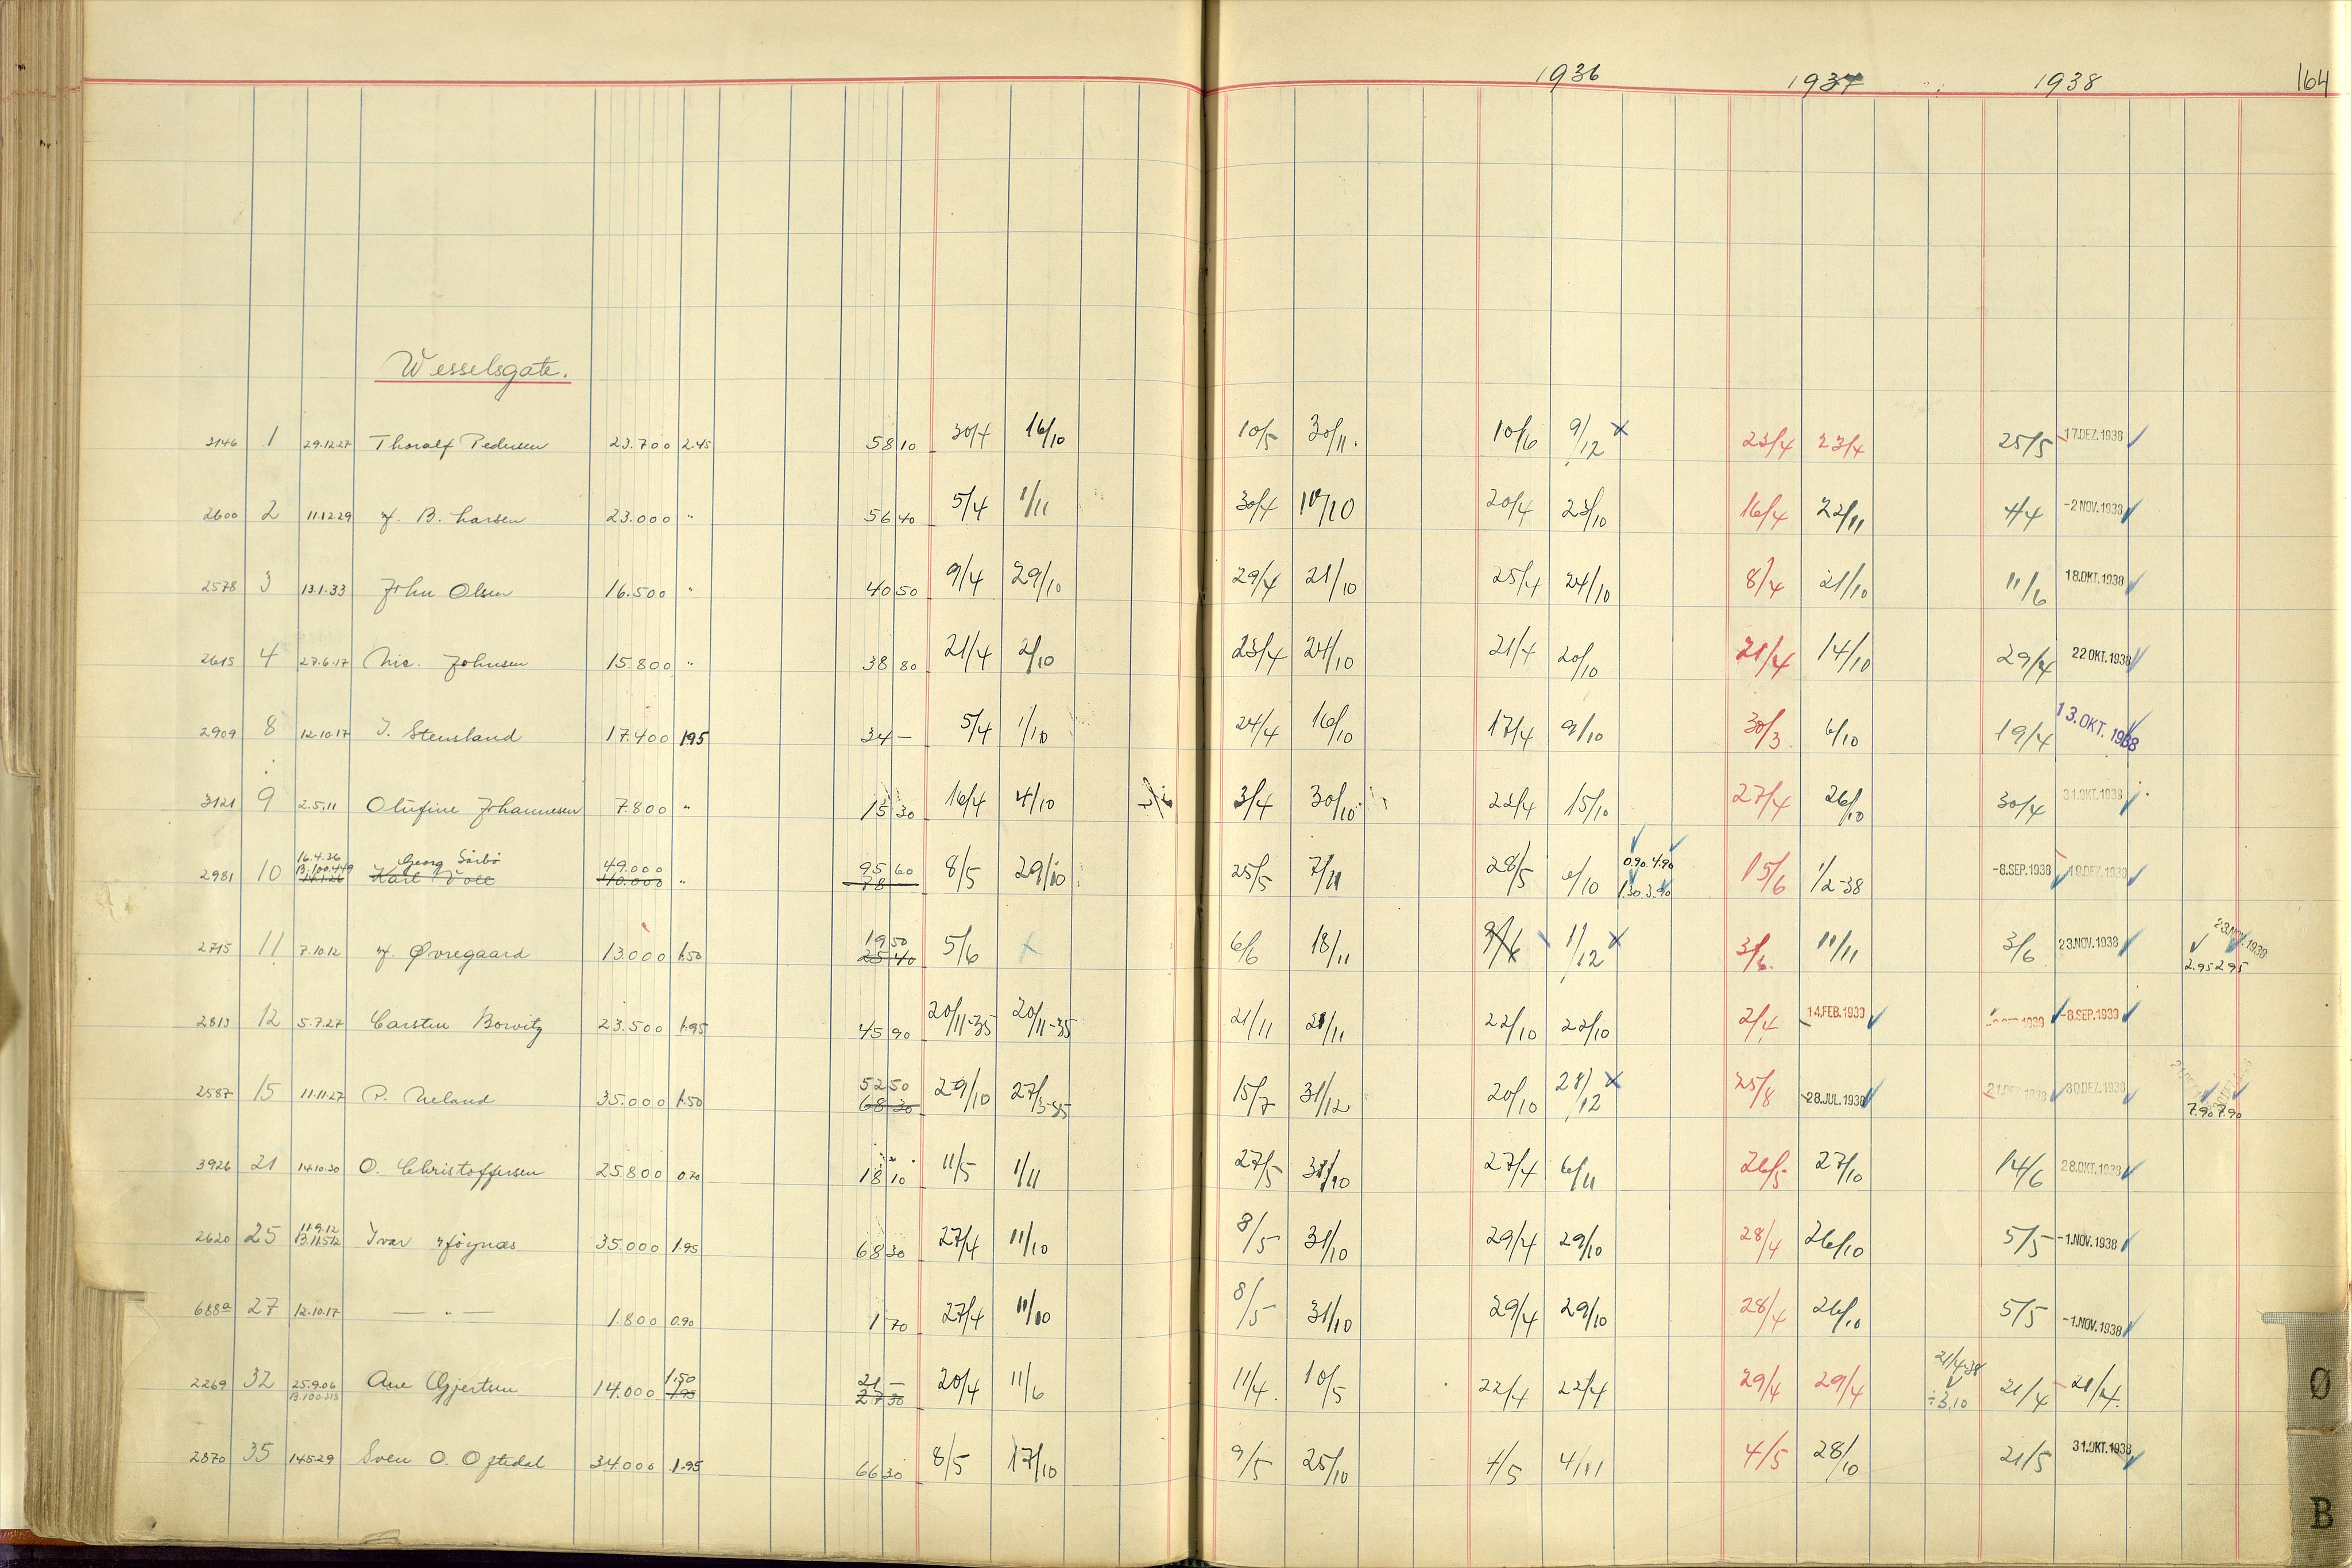 1936 1937 1938 164
Wesselsgate.
3146 1 29.12.27 Thoralf Pedersen 23.700 2.45 58 10 30/4 16/10 10/5 30/11. 10/6 9/12 x 23/4 23/4 25/5 17.DEZ.1938
2600 2 11.12.29 B. Larsen 23.000 " 56 40 5/4 1/11 30/4 10/10 20/4 23/10 16/4 22/11 4/4 -2 NOV.1938
2578 3 13.1.33 John Olsen 16.500 " 40 50 9/4 29/10 29/4 21/10 25/4 24/10 8/4 21/10 11/6 18.OKT.1938
2615 4 27.6.17 Nic. Johnsen 15.800 " 38 80 21/4 2/10 23/4 24/10 21/4 20/10 21/4 14/10 29/4 22 OKT.1938
2909 8 12.10.17 J. Stensland 17.400 1.95 34 — 5/4 1/10 24/4 16/10 17/4 9/10 30/3 6/10 19/4 13.OKT. 1938
3121 9 2.5.11 Olufine Johannesen 7.800 " 15 30 16/4 4/10 3/4 30/10 22/4 15/10 27/4 26/10 30/4 31.OKT.1938
16.4.36 Georg Sörbö 49.000 95 60 0.90 4.90
2981 10 B.100.449 14.1.26 Karl Voll 40.000 " 78 8/5 29/10 25/5 7/11 28/5 6/10 1.30 3.90 15/6 1/2-38 -8.SEP.1938 19.DEZ.1938
19 50 23.NOV.1938
2715 11 7.10.12 Øvregaard 13.000 1.50 25 40 5/6 x 6/6 18/11 9/6 1/12 x 3/6. 11/11 3/6 23.NOV.1938 2.95 2.95
2813 12 5.7.27 Carsten Borvitz 23.500 1.95 45 90 20/11-35 20/11-35 21/11 21/11 22/10 22/10 2/4 14.FEB.1939 1939 -8.SEP.1939
52 50
2587 15 11.11.27 P. Ueland 35.000 1.50 68 30 29/10 27/3-35 15/7 31/12 20/10 28/12 x 25/8 28.JUL.1938 21.DEZ.1938 30 DEZ.1938 7.90 7.90
3926 21 14.10.30 O. Christoffersen 25.800 0.70 18 10 11/5 1/11 27/5 31/10 27/4 6/11 26/5 27/10 14/6 28.OKT.1938
2620 25 11.9.12 B.11.512 Ivar Høynæs 35.000 1.95 68 30 27/4 11/10 8/5 31/10 29/4 29/10 28/4 26/10 5/5 -1.NOV.1938
688a 27 12.10.17 — " — 1.800 0.90 1 70 27/4 11/10 8/5 31/10 29/4 29/10 28/4 26/10 5/5 -1.NOV.1938
1.50 21 — 21/4-38
2269 32 25.9.06 B.100.313 Ane Gjertsen 14.000 1.95 27 30 20/4 11/6 11/4. 10/5 22/4 22/4 29/4 29/4 ÷3.10 21/4 21/4.
2870 35 14.5.29 Sven O. Oftedal 34.000 1.95 66 30 8/5 17/10 9/5 25/10 4/5 4/11 4/5 28/10 21/5 31.OKT.1938
Ø
B